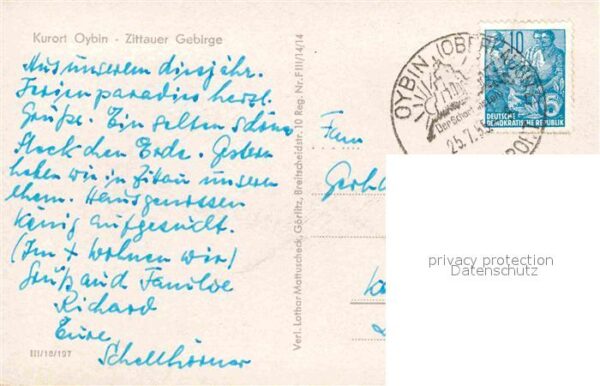 Kurort Oybin - Zittauer Gebirge
Aus unserem diesjähr.
Ferienparadies herzl.
Grüße. Ein selten schönes
Fleckchen Erde. Gestern
haben wir in Zittau unseren
ehem. Hausgenossen
König aufgesucht.
(Im + wohnen wir)
Gruß auch Familie
Richard
Eure
Schellhörner
III/18/197
Verl. Lothar Mattuscheck, Görlitz, Breitscheidstr. 10 Reg. Nr. F III/14/14
Fam
Gerha
OYBIN (OBERLAUSITZ)
25.7.5
10
5
DEUTSCHE
DEMOKRATISCHE REPUBLIK
privacy protection
Datenschutz